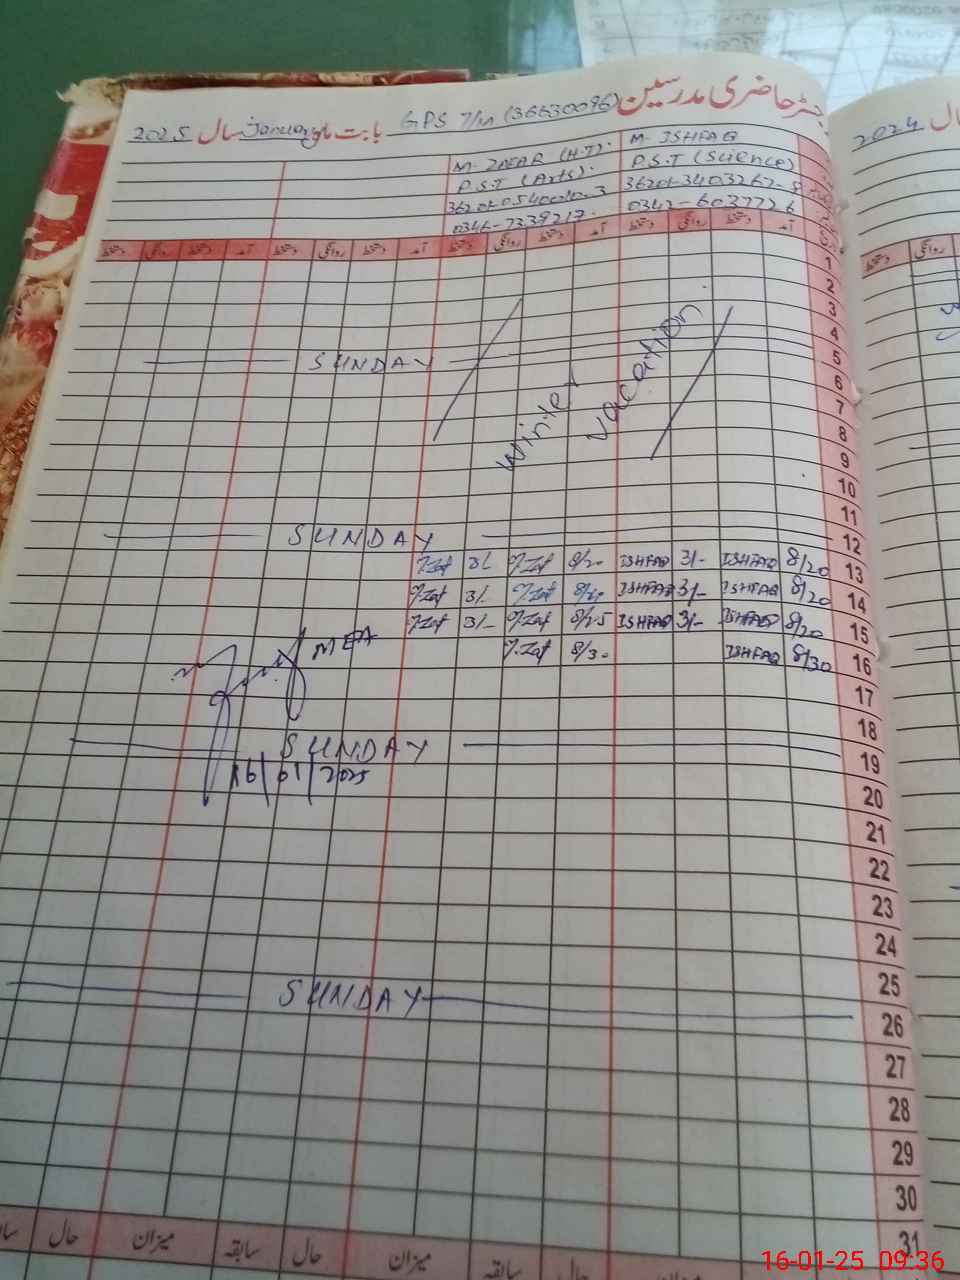 رجسٹر حاضری مدرسین GPS 7/M (36630096) بابت ماہ January سال 2025
2024
M. ISHFAQ
P.S.T (Science)
0342-6037726
M. ZAFAR (H.T).
P.S.T (Arts).
0346-7339217.
آمد دستخط روانگی دستخط آمد دستخط روانگی دستخط آمد دستخط روانگی دستخط آمد دستخط روانگی دستخط
دستخط روانگی
1
2
3
4
SUNDAY 5
6
7
8
9
10
11
Winter vacation
SUNDAY 12
3/- 8/20 ISHFAQ 3/- ISHFAQ 8/20 13
3/- ISHFAQ 3/- ISHFAQ 8/20 14
3/- 8/25 ISHFAQ 3/- ISHFAQ 8/20 15
8/30 ISHFAQ 8/30 16
MEA
17
18
SUNDAY 19
16/01/2025
20
21
22
23
24
25
SUNDAY 26
27
28
29
30
31
سابقہ حال میزان سابقہ حال میزان
16-01-25 09:36